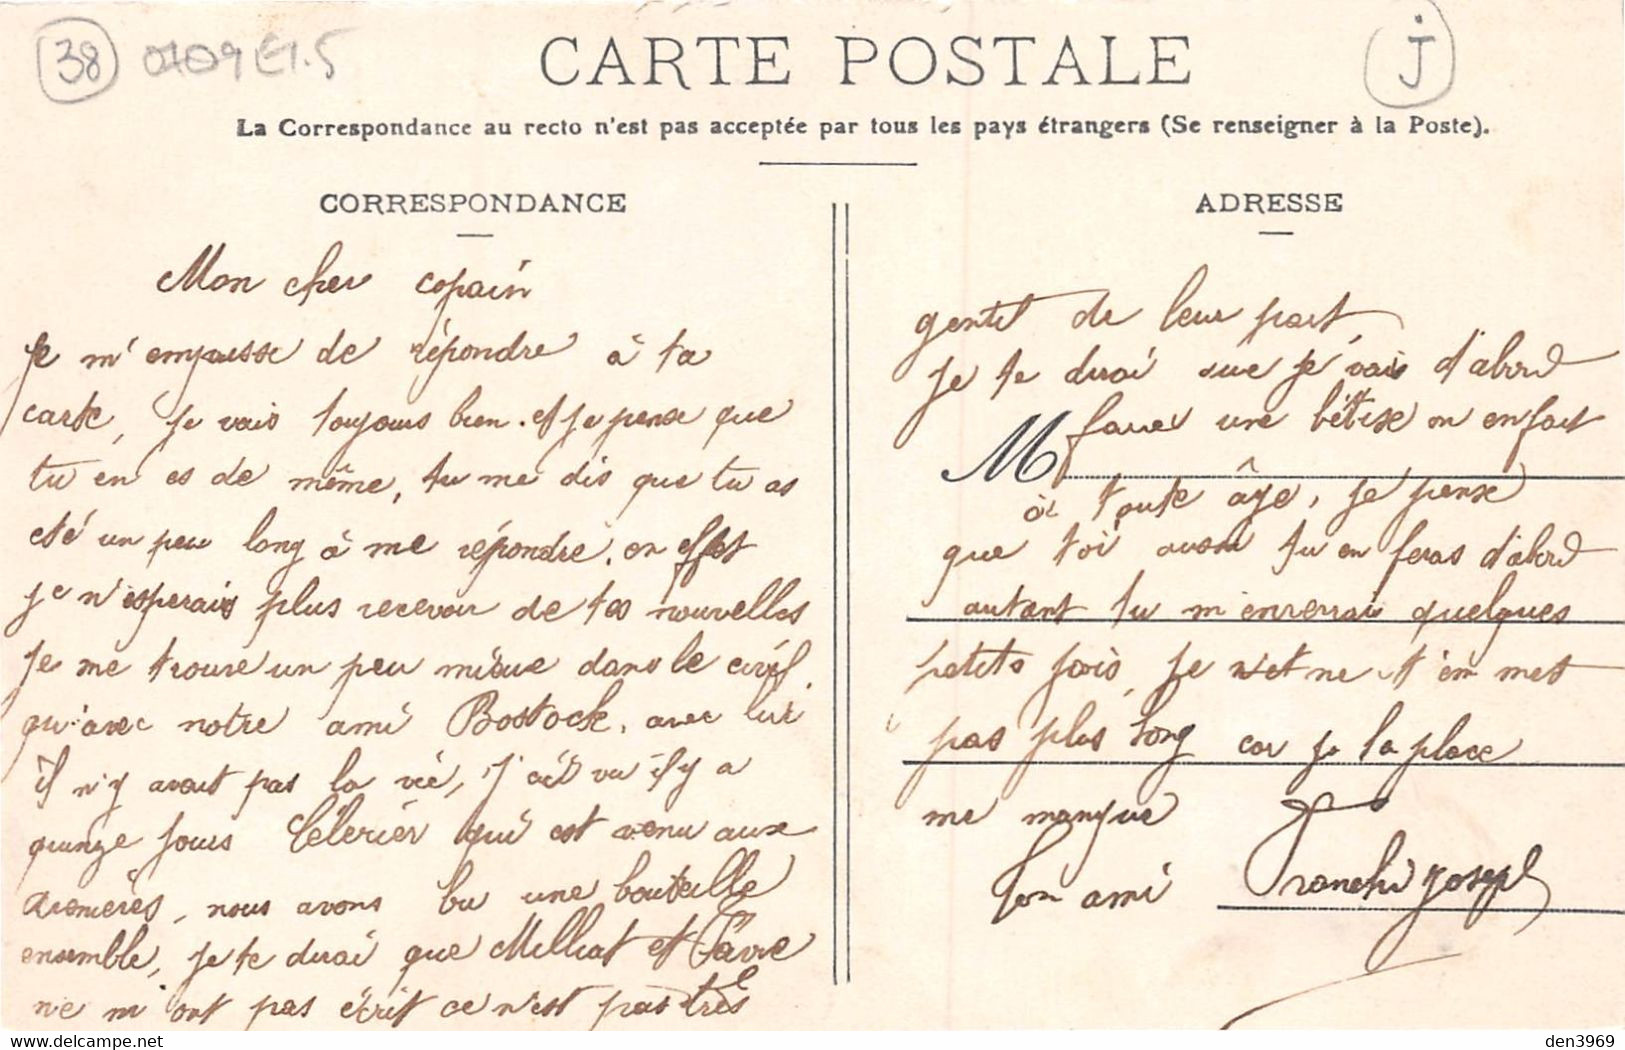 38
J
CARTE POSTALE
La Correspondance au recto n'est pas acceptée par tous les pays étrangers (Se renseigner à la Poste).
CORRESPONDANCE
Mon cher copain
Je m'empresse de répondre à ta
carte, je vais toujours bien. et je pense que
tu en es de même, tu me dis que tu as
été un peu long à me répondre. en effet
je n'esperais plus recevoir de tes nouvelles
Je me trouve un peu mieux dans le civil
qu'avec notre ami Bostock. avec lui
il n'y avait pas la vie, j'ai vu il y a
quinze jours Célerier qui est venu aux
ensemble, je te dirai que Milliat et Favre
ne m'ont pas écrit ce n'est pas très
ADRESSE
gentil de leur part,
je te dirai que je vais d'abord
M
faire une bétise on en fait
à toute âge, je pense
que toi aussi tu en feras d'abord
autant tu m'enverrai quelques
petits pois, Je n'et ne t'en met
pas plus long car je la place
me manque
Ton ami Franchi Joseph
den3969